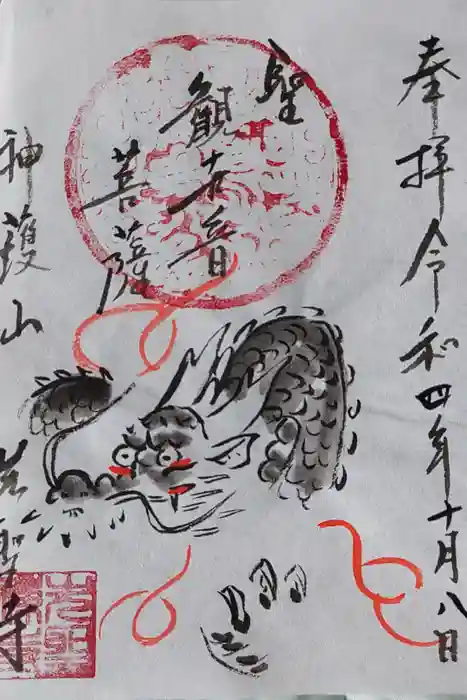 奉拝令和四年十月八日
聖
観世音
菩薩
神護山
光聖寺